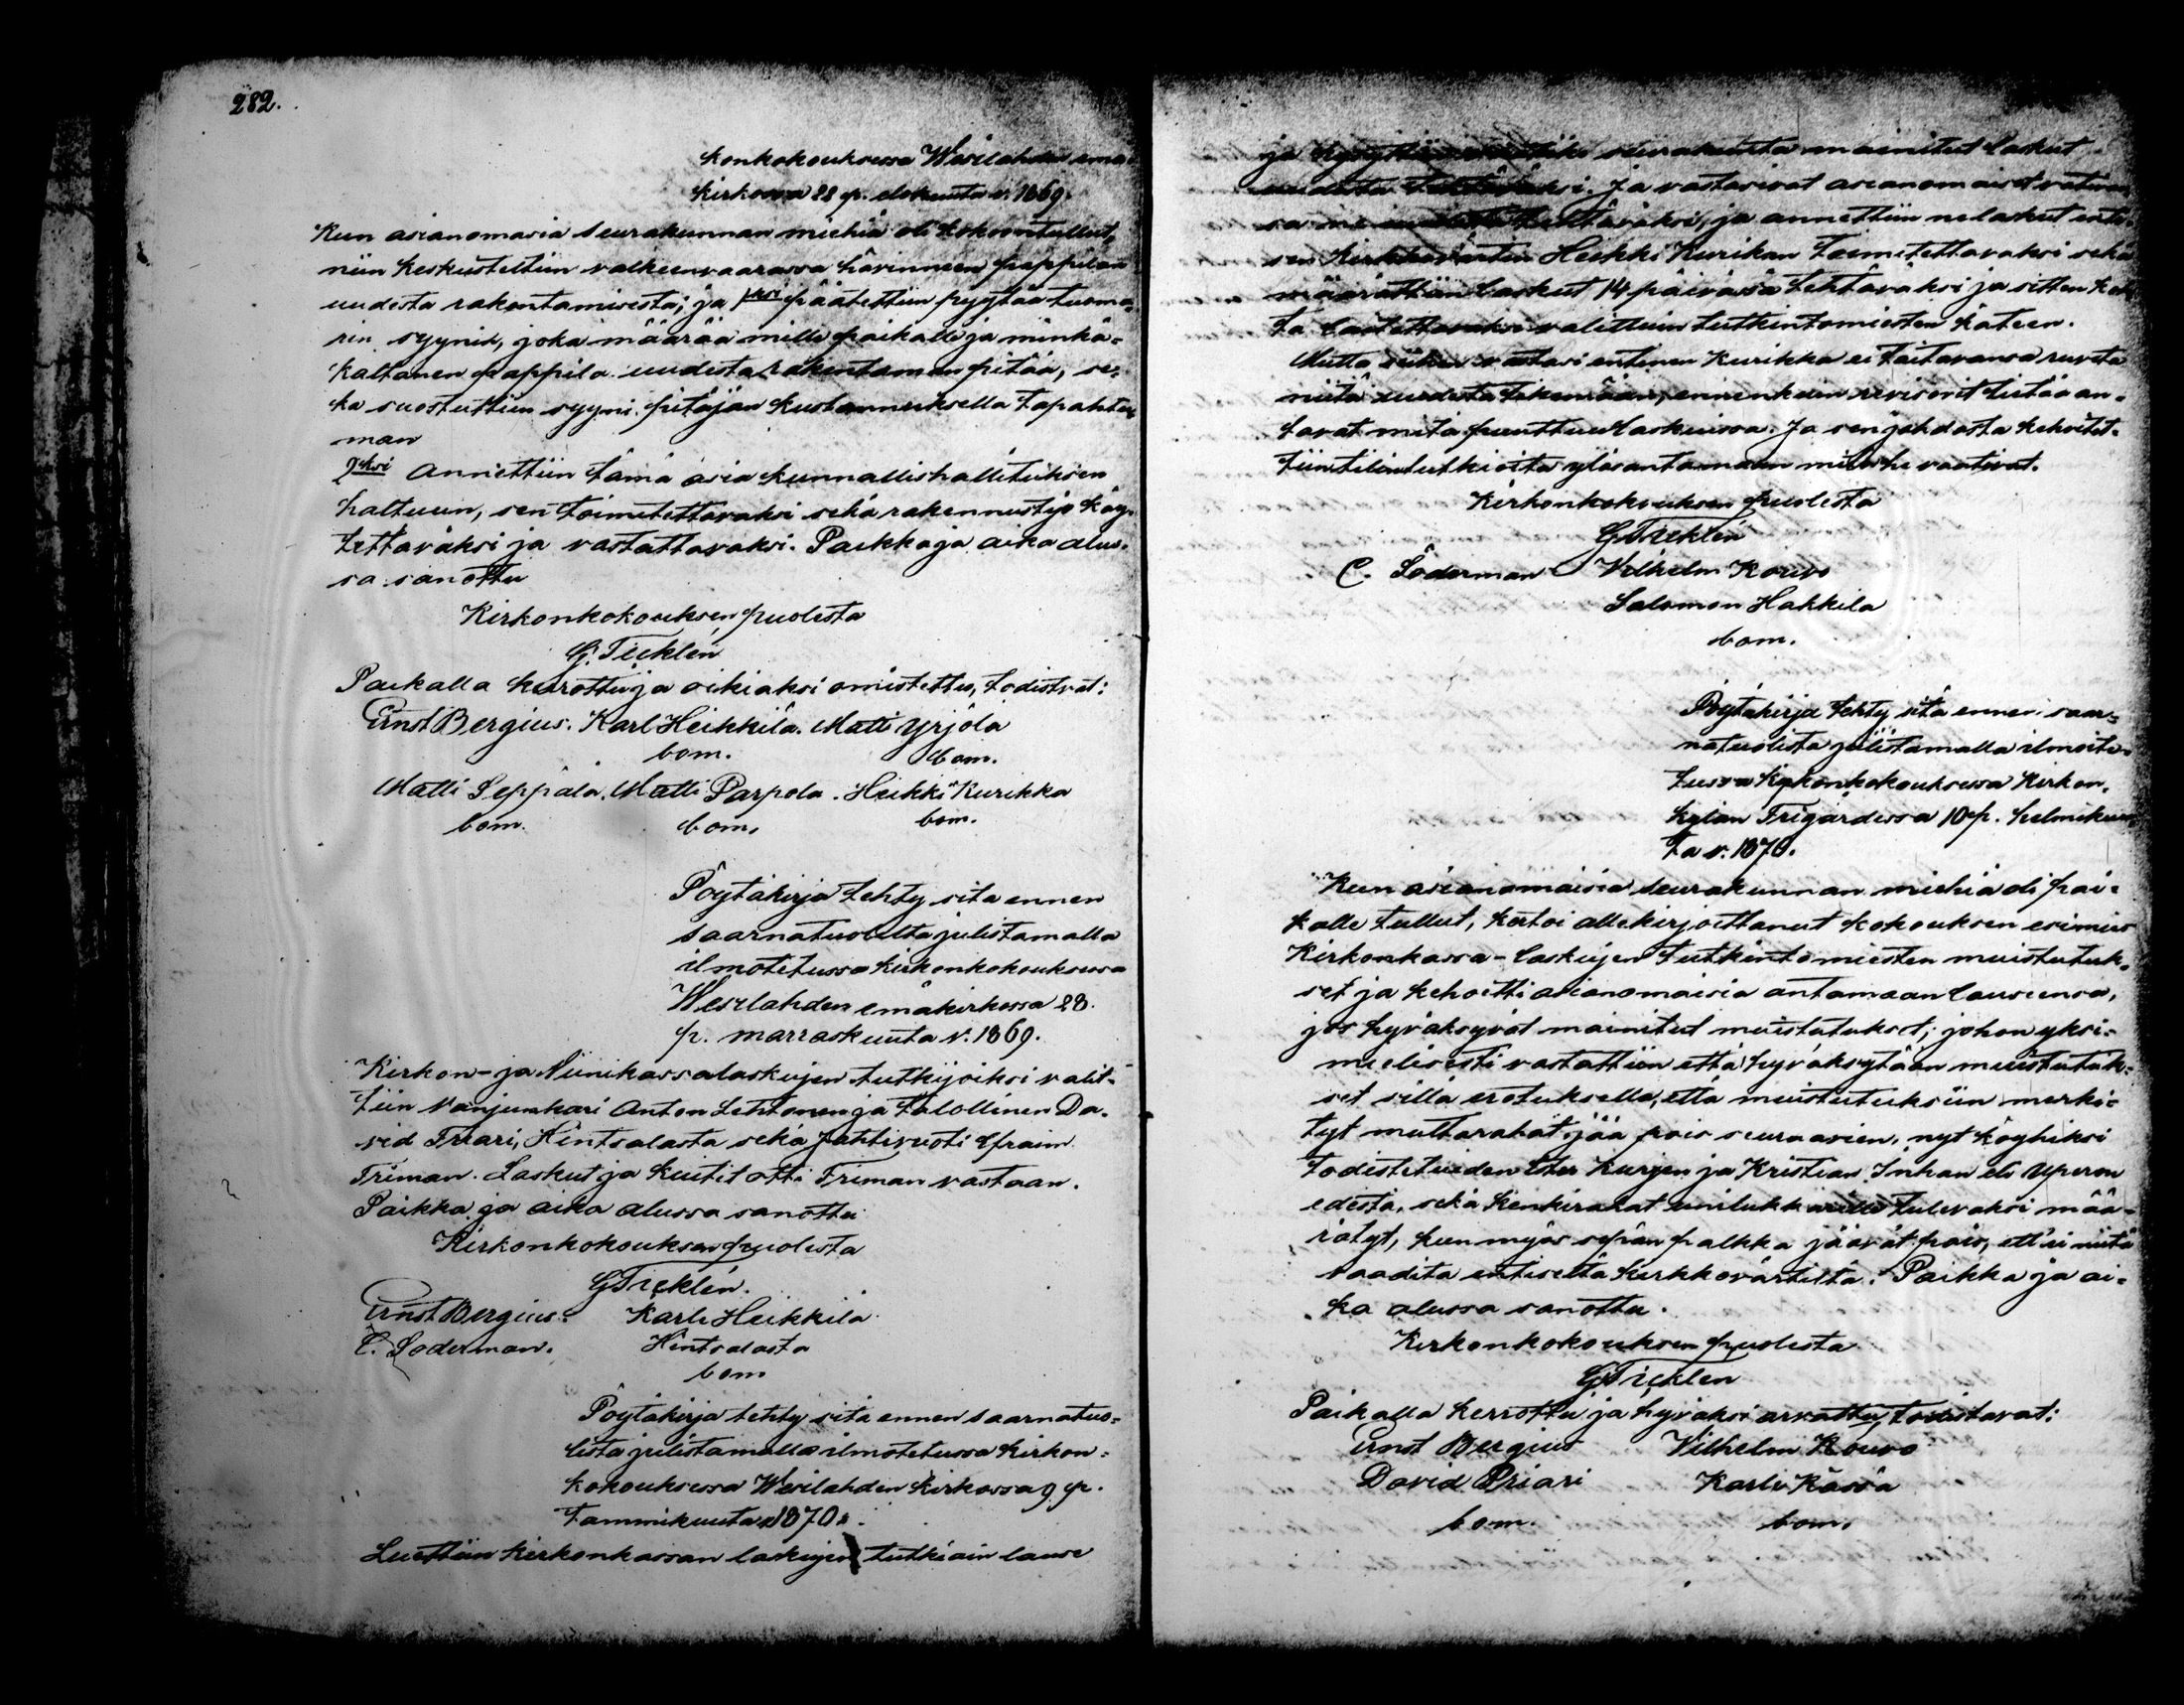 282.
konkokouksessa Wesilahden emä-
kirkossa 22 p. elokuuta v. 1869.
Kun asianomasia seurakunnan miehiä oli kokoontullut,
niin keskusteltiin valkeenvaarassa hävinneen pappilan
uudesta rakentamisesta; ja 1ksi päätettiin pyytää tuoma-
rin syynin, joka määrää mille paikalle ja minkä-
kaltanen pappila uudesta rakentaman pitää, se-
kä suostuttiin syyni pitäjän kustannuksella tapahtu-
man
2ksi Annettiin tämä asia kunnallishallituksen
haltuun, sen toimitettavaksi sekä rakennustyö käy-
tettäväksi ja vastattavaksi. Paikka ja aika alus-
sa sanottu
Kirkonkokouksen puolesta
G. Ticklén
Paikalla kerottu ja oikiaksi omistettu, todistvat:
Ernst Bergius. Karl Heikkilä. Matti Yrjölä
bom. bom.
Matti Seppälä. Matti Parpola. Heikki Kurikka
bom. bom. bom.
Pöytäkirja tehty sitä ennen
saarnatuolilta julistamalla
ilmotetussa kirkonkokouksessa
Wesilahden emäkirkossa 28.
p. marraskuuta v. 1869.
Kirkon- ja Viinikassalaskujen tutkijoiksi valit-
tiin Vanjunkari Anton Lehtonen ja talollinen Da-
vid Priari, Hintsalasta sekä Jahtivouti Efraim
Friman. Laskut ja kuitit otti Friman vastaan.
Paikka ja aika alussa sanottu
Kirkonkokouksen puolesta
G Ticklén.
Ernst Bergius. Karle Heikkilä
C. Söderman. Hintsalasta
bom
Pöytäkirja tehty sitä ennen saarnatuo-
lista julistamalla ilmotetussa Kirkon-
kokouksessa Wesilahden kirkossa 9 p.
tammikuuta 1870.
Luettiin kirkonkassan laskujen tutkiain lause
ja seurakunta mainitut laskut
uudesta Ja vastasivat asianomaiset vativan-
sa ne ja annettiin ne laskut enti-
sen kirkkovärtin Heikki Kurikan toimitettavaksi sekä
määrättiin laskut 14 päivässä tehtäväksi ja sitten koh-
ta valittuin tutkintomiesten käteen.
Mutta siihen vastasi entinen Kurikka ei taitavansa ruveta
niitä uudesta tekemään, ennenkuin revisorit tietää an-
tavat mitä puuttuu laskuissa. Ja sen johdosta kehoitet-
tiin tilintutkioita ylösantamaan mitä he vaativat.
Kirkonkokouksen puolesta
G Ticklén
C. Söderman Vilhelm Kouvo
Salomon Hakkila
bom.
Pöytäkirja tehty sitä ennen saar-
natuolista julistamalla ilmoite-
tussa Kirkonkokouksessa Kirkon-
kylän Frigårdissa 10 p. helmikuu-
ta v. 1870.
Kun asianomaisia seurakunnan miehiä oli pai-
kalle tullut, kertoi allekirjoittanut kokouksen esimies
Kirkonkassa-laskujen tutkintomiesten muistutuk-
set ja kehoitti asianomaisia antamaan lauseensa,
jos hyväksyvät mainitut muistutukset; johon yksi-
mielisesti vastattiin että hyväksytään muistutuk-
set sillä erotuksella, että muistutuksiin merki-
tyt muttarahat jää pois seuraavien, nyt köyhiksi
todistetuiden Kurjen ja Kristian Inhan eli Uperon
edestä, sekä kenkirahat tulevaksi mää-
rätyt, kun myös sepän palkka jäävät pois, ett'ei niitä
vaadita entiseltä kirkkovärtiltä. Paikka ja ai-
ka alussa sanottu.
Kirkonkokouksen puolesta
G Ticklen
Paikalla kerrottu ja hyväksi arvattu, todistavat:
Ernst Bergius Vilhelm Kouvo
David Priari Karle Kässä
bom. bom.